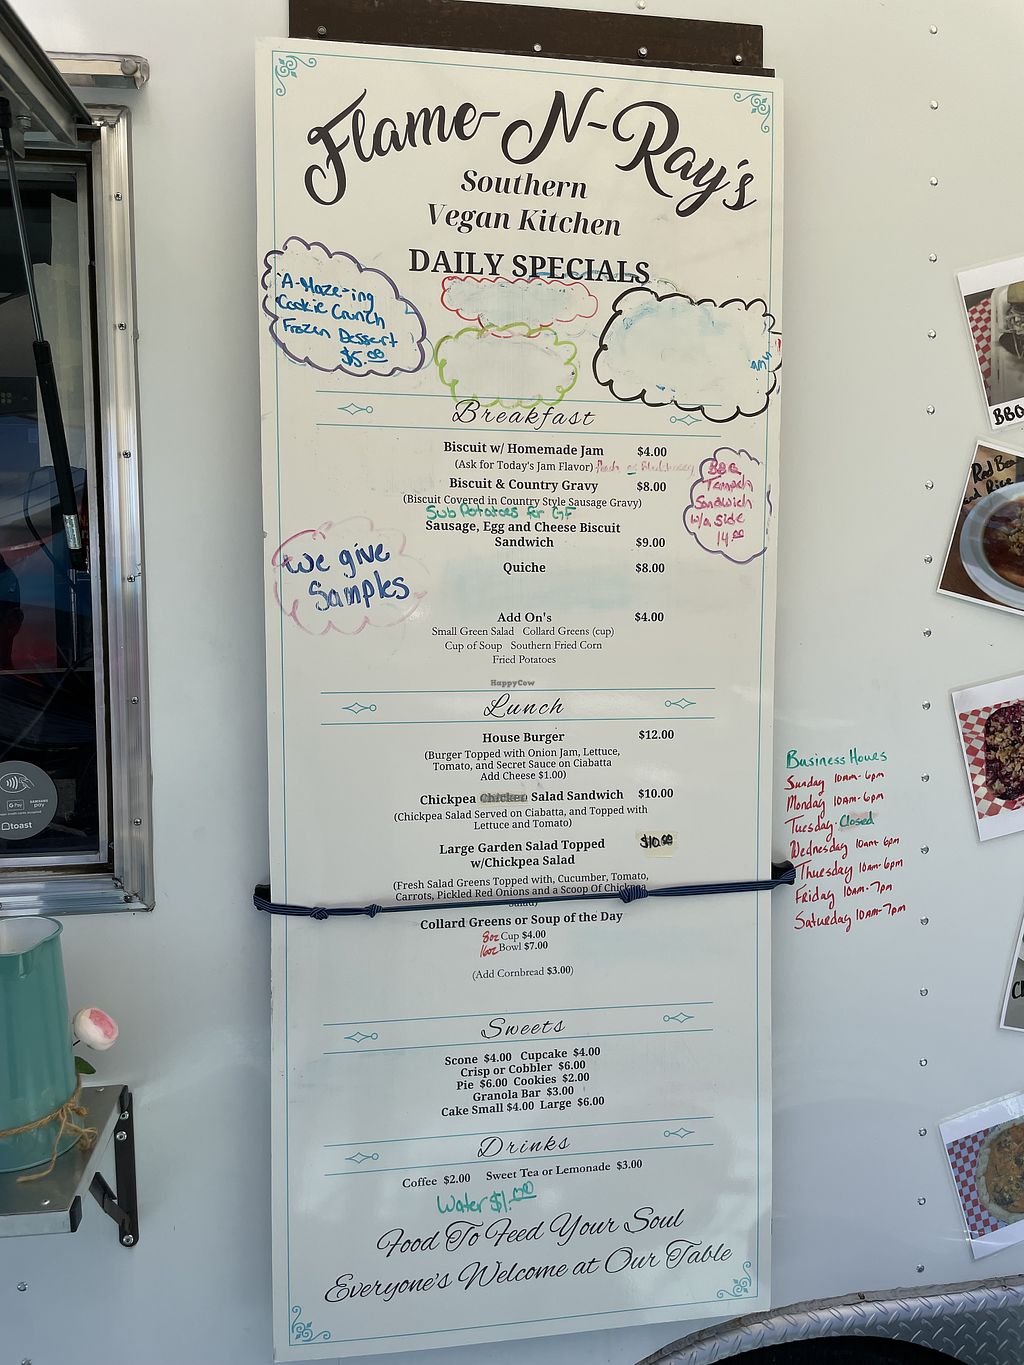 Flame-N-Ray's
Southern
Vegan Kitchen
DAILY SPECIALS
A-Maze-ing
Cookie Crunch
Frozen Dessert
$5.00
Breakfast
Biscuit w/ Homemade Jam $4.00
(Ask for Today's Jam Flavor) Peach or Blackberry
Biscuit & Country Gravy $8.00
(Biscuit Covered in Country Style Sausage Gravy)
Sub Potatoes for GF
Sausage, Egg and Cheese Biscuit
Sandwich $9.00
Quiche $8.00
BBQ
Tempeh
Sandwich
w/a side
14.00
We give
Samples
Add On's $4.00
Small Green Salad Collard Greens (cup)
Cup of Soup Southern Fried Corn
Fried Potatoes
HappyCow
Lunch
House Burger $12.00
(Burger Topped with Onion Jam, Lettuce,
Tomato, and Secret Sauce on Ciabatta
Add Cheese $1.00)
Chickpea Chicken Salad Sandwich $10.00
(Chickpea Salad Served on Ciabatta, and Topped with
Lettuce and Tomato)
Large Garden Salad Topped $10.00
w/Chickpea Salad
(Fresh Salad Greens Topped with, Cucumber, Tomato,
Carrots, Pickled Red Onions and a Scoop Of Chickpea
Salad)
Collard Greens or Soup of the Day
8oz Cup $4.00
16oz Bowl $7.00
(Add Cornbread $3.00)
Sweets
Scone $4.00 Cupcake $4.00
Crisp or Cobbler $6.00
Pie $6.00 Cookies $2.00
Granola Bar $3.00
Cake Small $4.00 Large $6.00
Drinks
Coffee $2.00 Sweet Tea or Lemonade $3.00
Water $1.00
Food To Feed Your Soul
Everyone's Welcome at Our Table
Business Hours
Sunday 10am-6pm
Monday 10am-6pm
Tuesday-Closed
Wednesday 10am-6pm
Thursday 10am-6pm
Friday 10am-7pm
Saturday 10am-7pm
G Pay
SAMSUNG
pay
toast
BBQ
Red Beans
and Rice